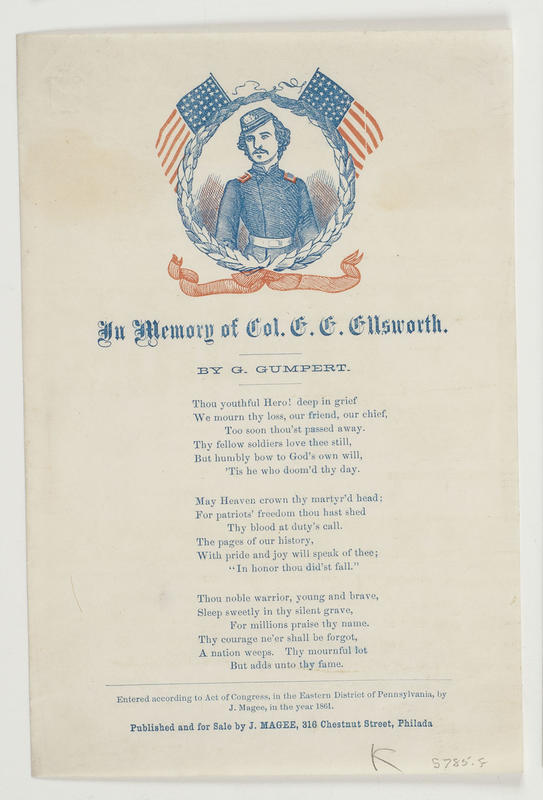 In Memory of Col. E. E. Ellsworth.
BY G. GUMPERT.
Thou youthful Hero! deep in grief
We mourn thy loss, our friend, our chief,
Too soon thou'st passed away.
Thy fellow soldiers love thee still,
But humbly bow to God's own will,
'Tis he who doom'd thy day.
May Heaven crown thy martyr'd head;
For patriots' freedom thou hast shed
Thy blood at duty's call.
The pages of our history,
With pride and joy will speak of thee;
"In honor thou did'st fall."
Thou noble warrior, young and brave,
Sleep sweetly in thy silent grave,
For millions praise thy name.
Thy courage ne'er shall be forgot,
A nation weeps. Thy mournful lot
But adds unto thy fame.
Entered according to Act of Congress, in the Eastern District of Pennsylvania, by
J. Magee, in the year 1861.
Published and for Sale by J. MAGEE, 316 Chestnut Street, Philada
K